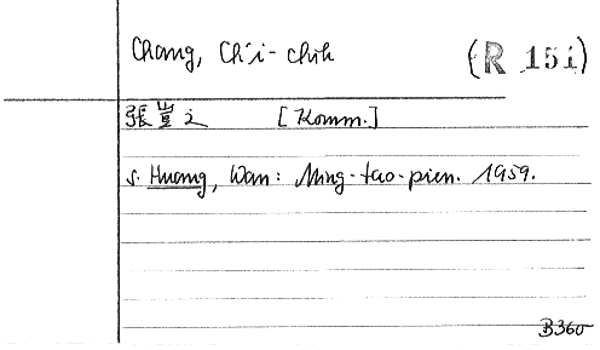 Chang, Ch'i-chih (R 15i)
張豈之 [Komm.]
s. Huang, Wan: Ming-tao-pien. 1959.
B360